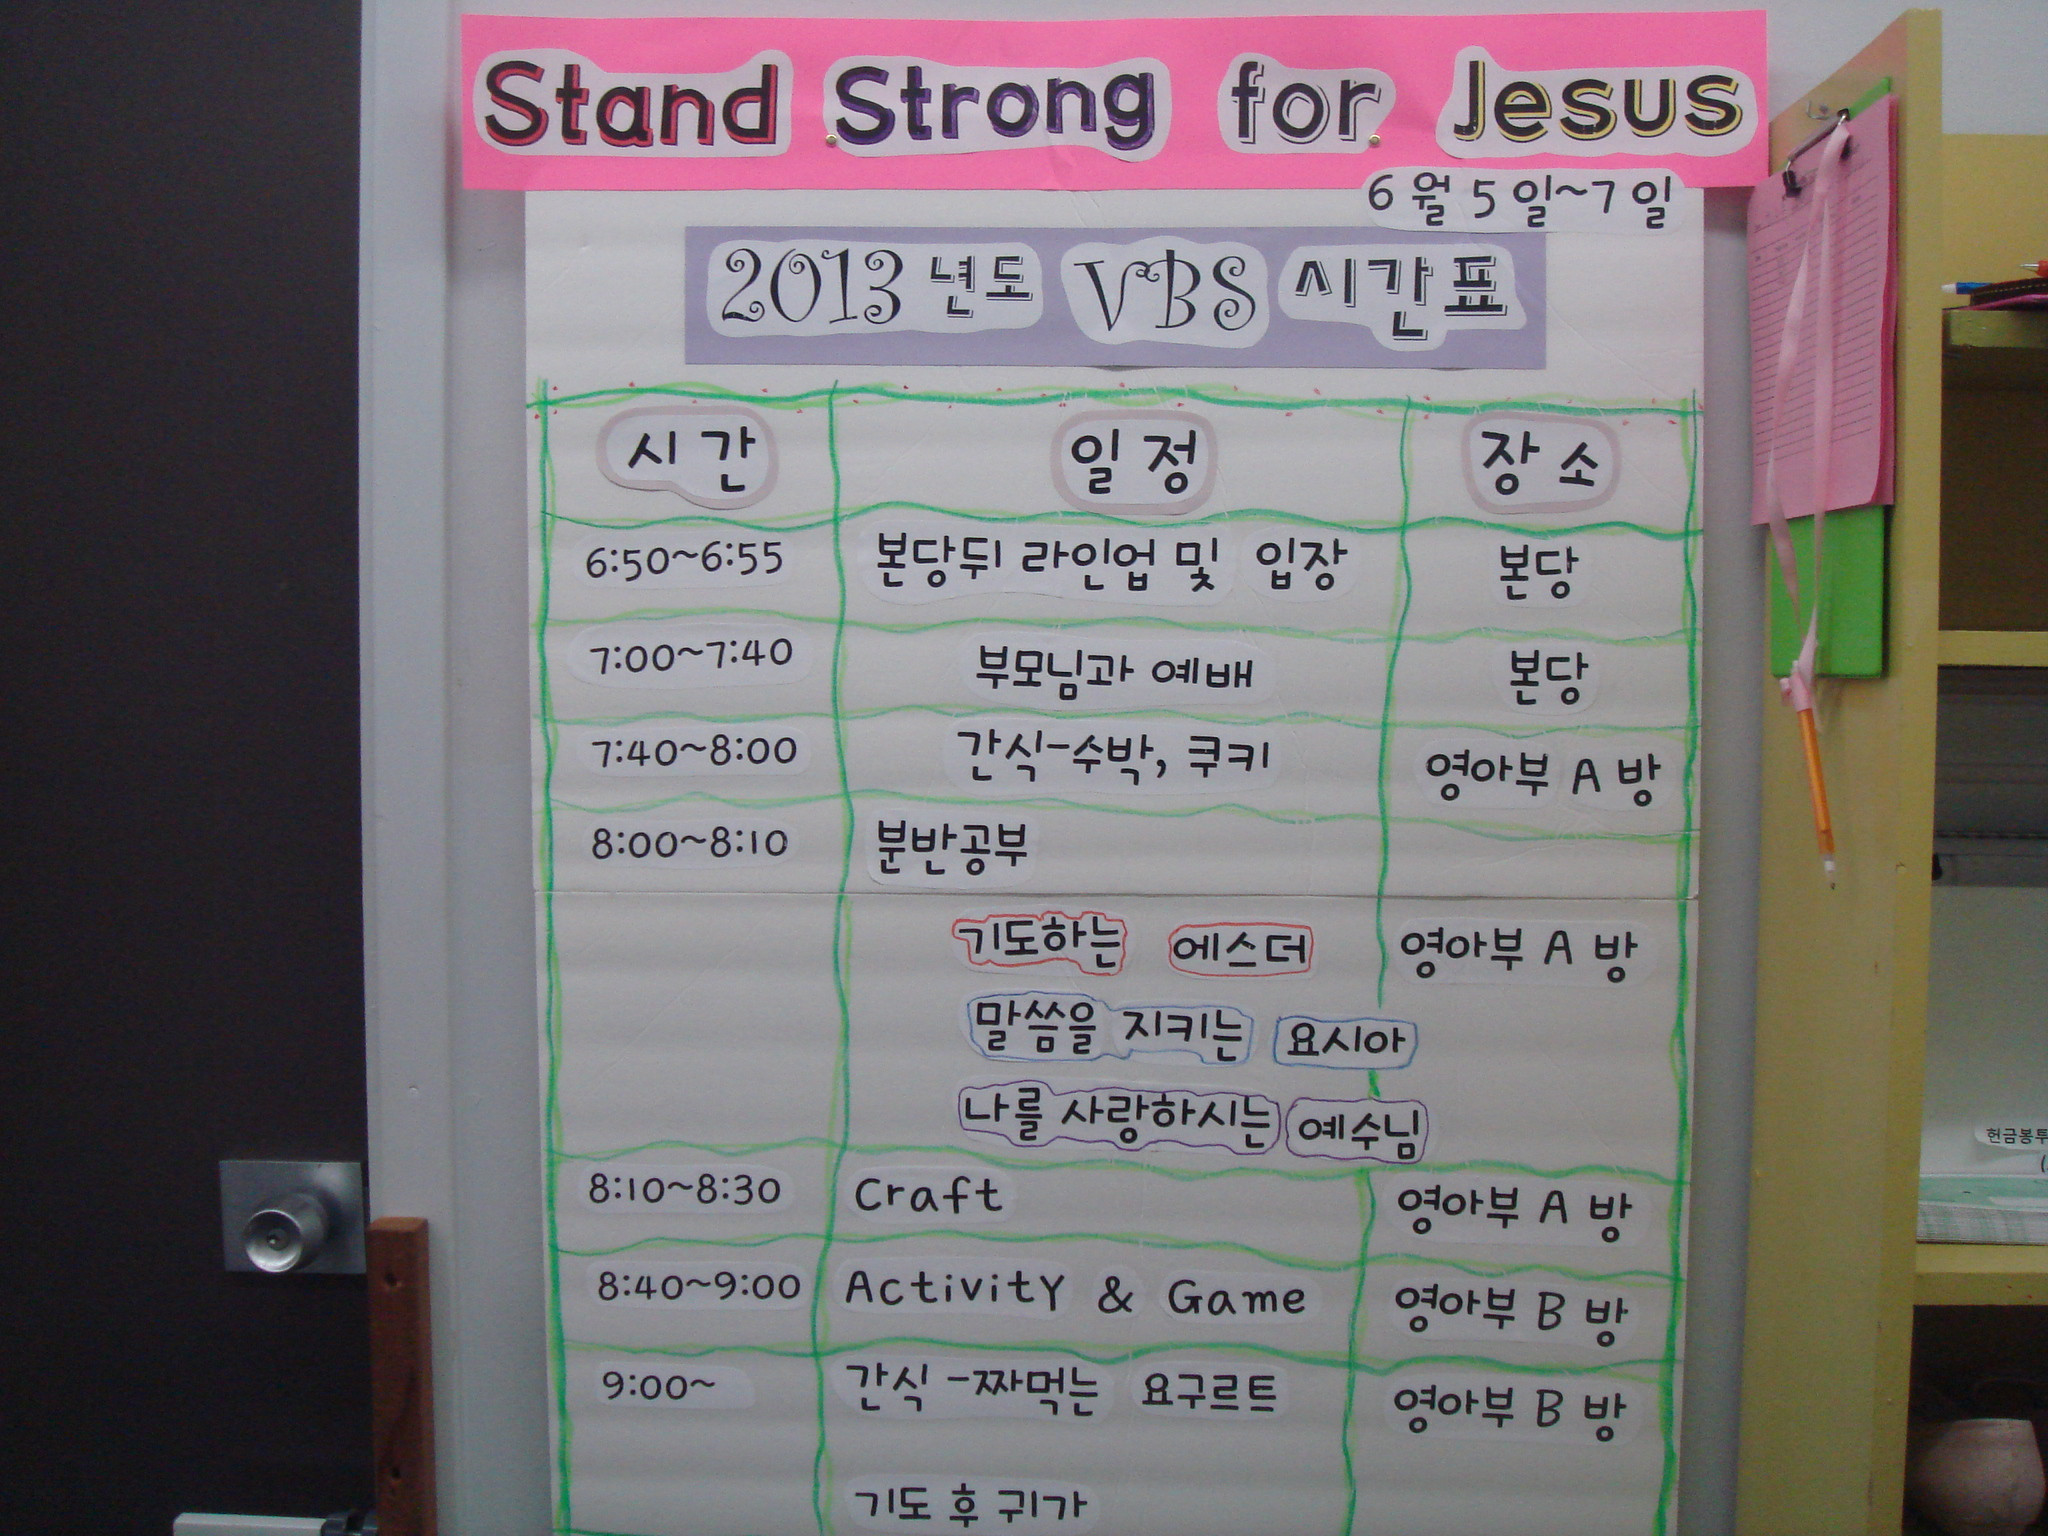 Stand Strong for Jesus
6 월 5 일~7 일
2013 년도 VBS 시간표
시 간 일 정 장 소
6:50~6:55 본당뒤 라인업 및 입장 본당
7:00~7:40 부모님과 예배 본당
7:40~8:00 간식-수박, 쿠키 영아부 A 방
8:00~8:10 분반공부
기도하는 에스더 영아부 A 방
말씀을 지키는 요시아
나를 사랑하시는 예수님
8:10~8:30 Craft 영아부 A 방
8:40~9:00 Activity & Game 영아부 B 방
9:00~ 간식 -짜먹는 요구르트 영아부 B 방
기도 후 귀가
헌금봉투